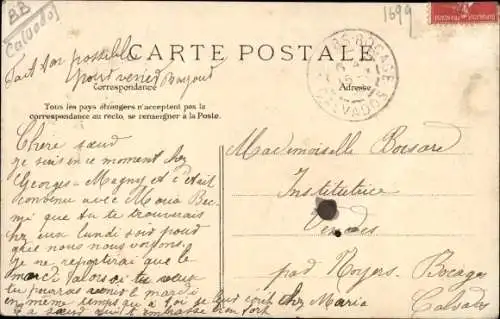 BB
Calvados
1699
CARTE POSTALE
Fait ton possible
pour venir Bonjour
Correspondance
Adresse
Tous les pays étrangers n'acceptent pas la
correspondance au recto, se renseigner à la Poste.
BOCAGE
CALVADOS
Chère sœur
je suis en ce moment chez
Georges Magny et c'était
convenu avec Maria Bec
mi que tu te trouverais
chez eux lundi soir pour
que nous nous voyons.
Je ne repartirai que le
mardi alors si tu veux
tu pourras venir le mardi
en même temps que à toi je leur écrit chez Maria
Ta sœur qui t'embrasse bien fort
Mademoiselle Bocsare
Institutrice
Vendes
par Noyers Bocage
Calvados